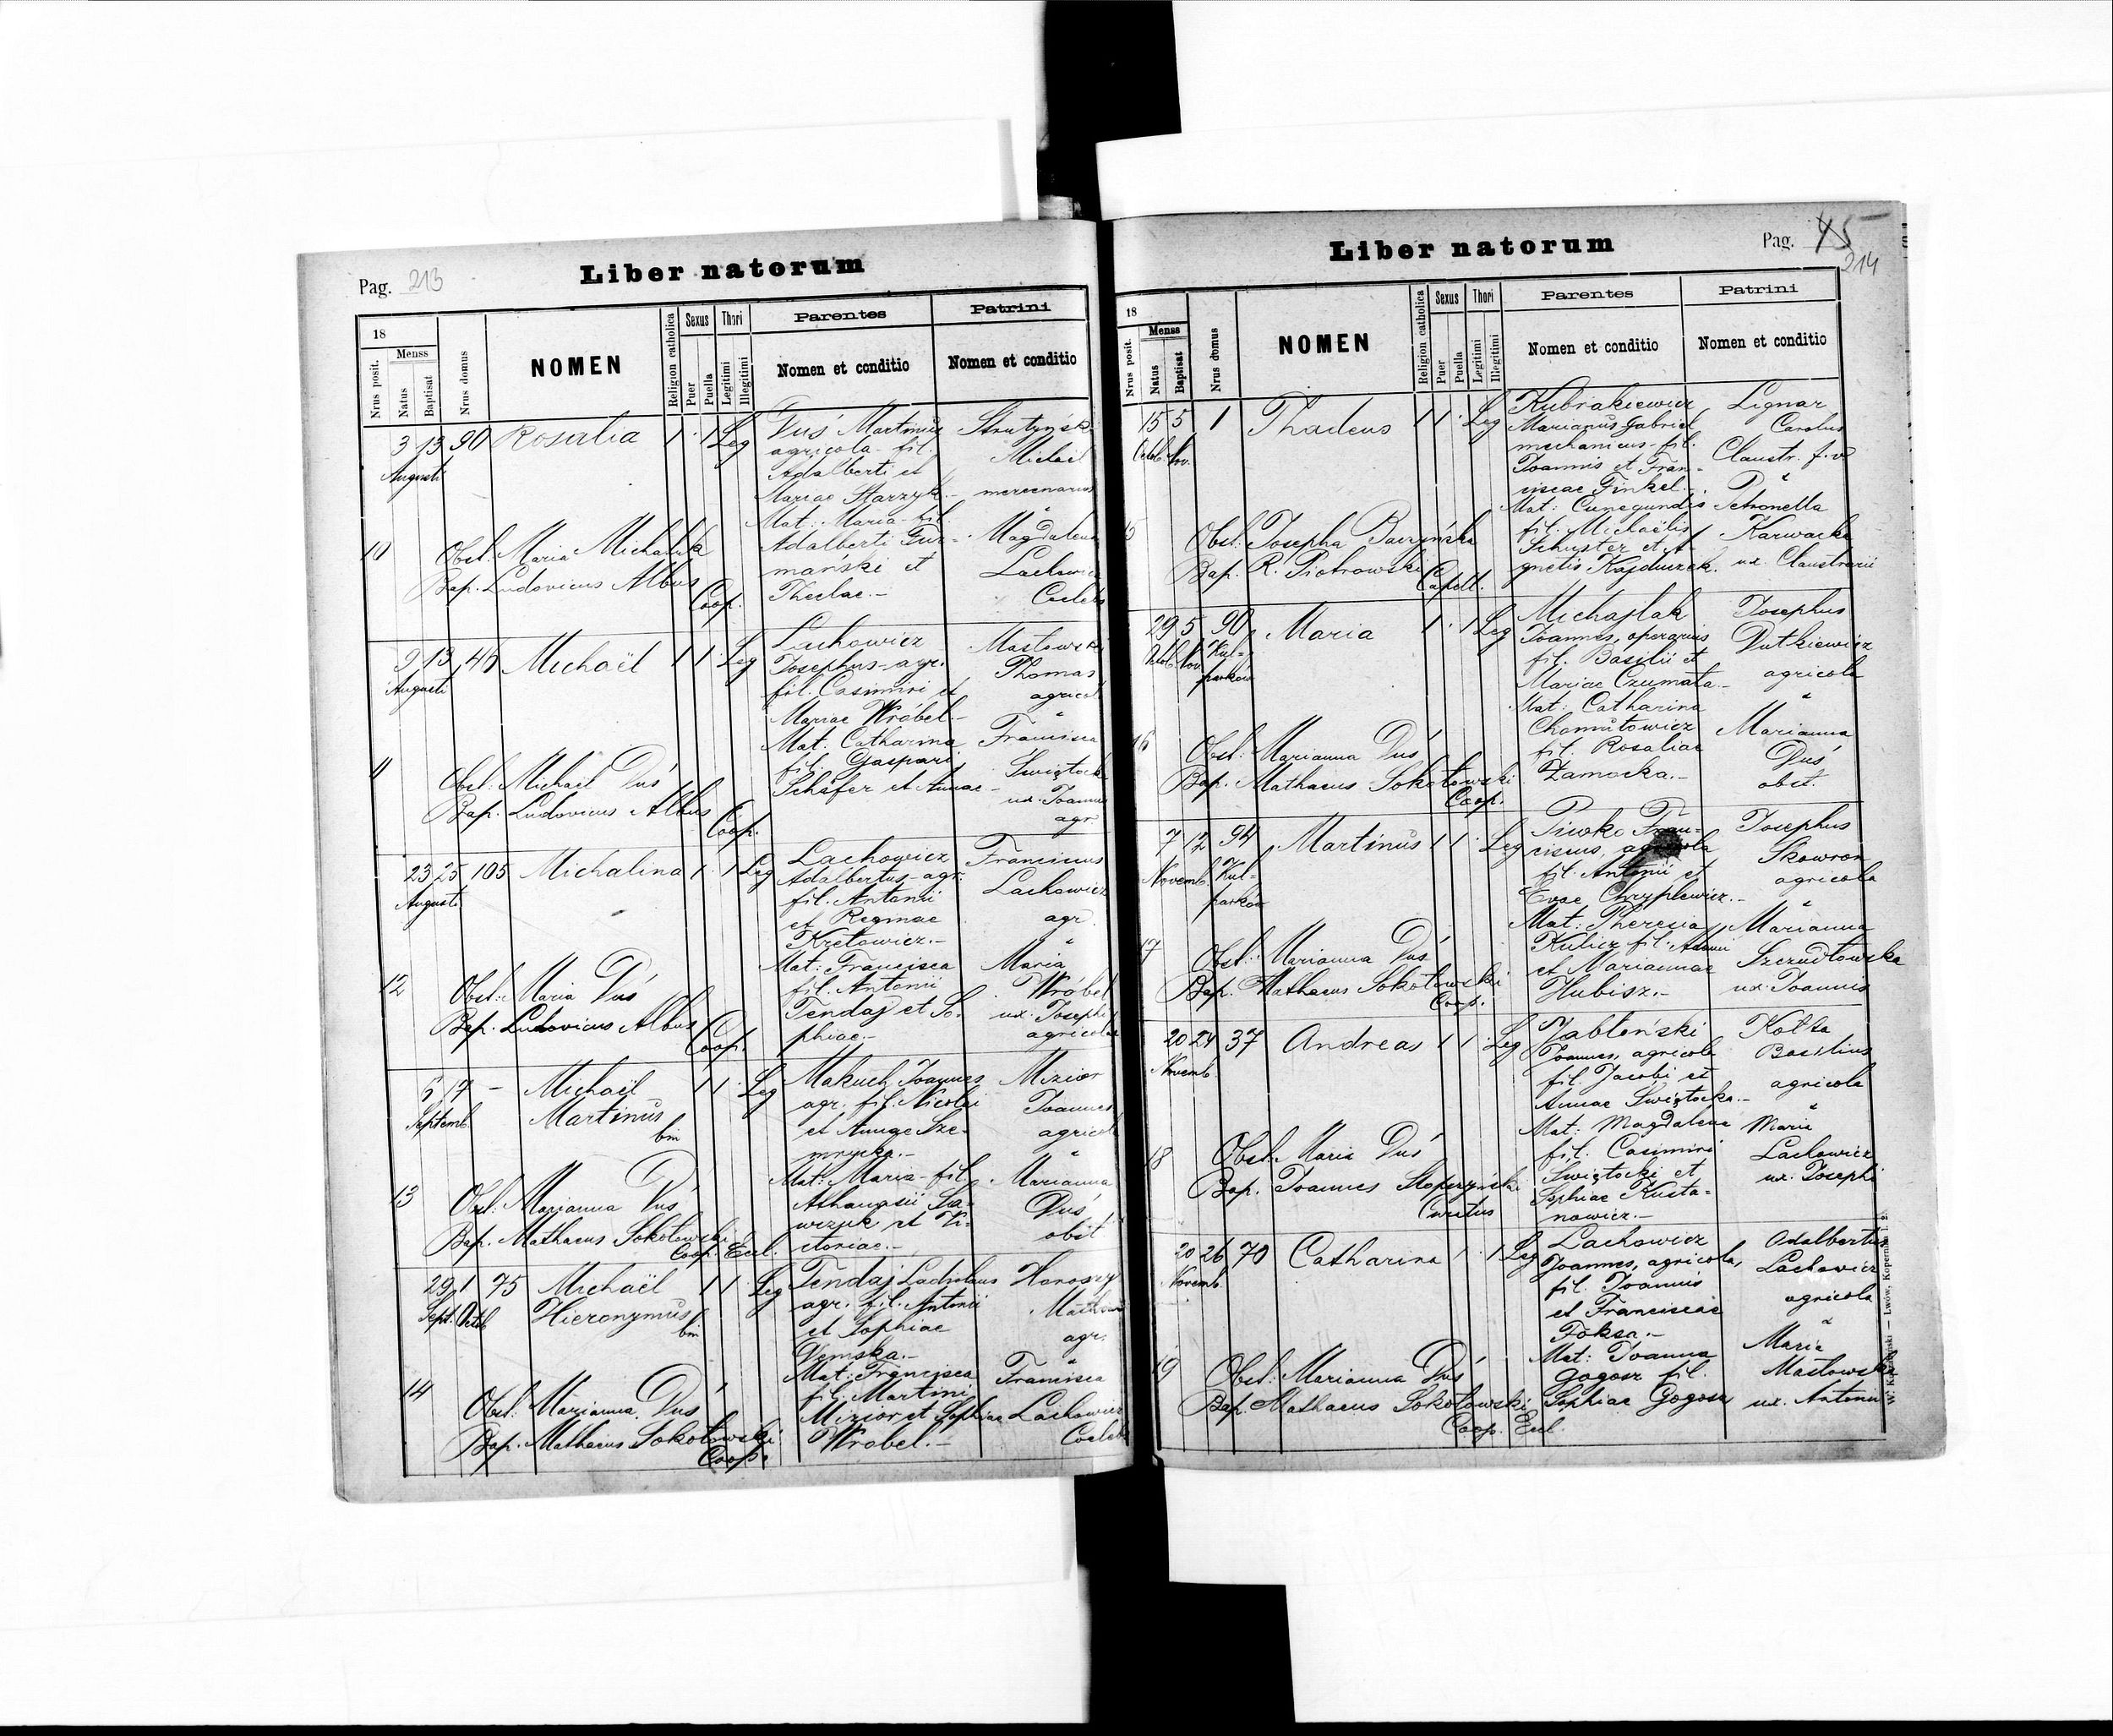 Pag. 213
Liber natorum
18
Nrus posit.
Menss
Natus
Baptisat
Nrus domus
NOMEN
Religion catholica
Sexus
Puer
Puella
Thori
Legitimi
Illegitimi
Parentes
Nomen et conditio
Patrini
Nomen et conditio
3 13 90 Rosalia 1 · 1 Leg
Augusti
Duś Martinus
agricola - fil.
Adalberti et
Mariae Starzyk. -
Mat: Maria - fil.
Adalberti Fur-
mański et
Theclae. -
Strutyński
Michael
mercenarius
"
Magdalena
Lachowicz
10
Obst. Maria Michaluk
Bap. Ludovicus Albus
Coop.
9 13 46 Michaël 1 1 · Leg
Augusti
Lachowicz
Josephus - agr.
fil. Casimiri et
Mariae Wróbel. -
Mat. Catharina
fil. Gaspari
Schäfer et Annae -
Masłowski
Thomas
agricol
"
Francisca
Świętocka
ux. Joannis
agr
11
Obst. Michael Duś
Bap. Ludovicus Albus
Coop.
23 25 105 Michalina 1 · 1 Leg
Augusti
Lachowicz
Adalbertus - agr.
fil. Antonii
et Reginae
Krętowicz. -
Mat: Francisca
fil. Antonii
Tendaj et So-
phiae. -
Franciscus
Lachowicz
agr.
"
Maria
Wróbel
ux. Josephi
agricolae
12
Obst.: Maria Duś
Bap. Ludovicus Albus
Coop.
6 17 - Michaël 1 1 · Leg
Septemb. Martinus
bin
Makuch Joannes
agr. fil. Nicolai
et Annae Sze-
mrycka. -
Mat: Maria - fil.
Athanasii Sa-
wczuk et Vi-
ctoriae. -
Mizior
Joannes
agricol
"
Marianna
Duś
obst
13
Obst: Marianna Duś
Bap. Mathaeus Sokołowski
Coop. Eccl.
29 1 75 Michaël 1 1 · Leg
Sept. Octob Hieronymus
bin
Tendaj Ladislaus
agr. fil. Antonii
et Sophiae
Demska. -
Mat: Francisca
fil. Martini
Mizior et Sophiae
Wróbel. -
agr.
"
Francisca
Lachowicz
14
Obst: Marianna Duś
Bap. Mathaeus Sokołowski
Coop.
Liber natorum
Pag. 45
214
18
Nrus posit.
Menss
Natus
Baptisat
Nrus domus
NOMEN
Religion catholica
Sexus
Puer
Puella
Thori
Legitimi
Illegitimi
Parentes
Nomen et conditio
Patrini
Nomen et conditio
15 5 1 Thadeus 1 1 · Leg
Octob. Nov.
Kubrakiewicz
Marianus Gabriel
mechanicus - fil.
Joannis et Fran-
ciscae Finkel. -
Mat: Cunegundis
fil. Michaëlis
Schuster et A-
gnetis Kajduczek.
Lignar
Carolus
Claustr. f.
"
Petronella
Karwacka
ux. Claustrarii
15
Obst: Josepha Baczyńska
Bap. R. Piotrowski
Capell.
29 5 90 Maria 1 · 1 Leg
Octob. Nov. Kul-
parków
Michajlak
Joannes, operarius
fil. Basilii et
Mariae Czumata. -
Mat: Catharina
Chomutowicz
fil. Rosaliae
Zamocka. -
Josephus
Dutkiewicz
agricola
"
Marianna
Duś
obst.
16
Obst: Marianna Duś
Bap. Mathaeus Sokołowski
Coop.
7 12 94 Martinus 1 1 · Leg
Novemb. Kul-
parków
Piwko Fran-
ciscus, agricola
fil. Antonii et
Evae Chryplewicz. -
Mat: Theresia
Kulicz fil. Adami
et Mariannae
Hubisz. -
Josephus
Skowron
agricola
"
Marianna
Szczudłowska
ux. Joannis
17
Obst: Marianna Duś
Bap. Mathaeus Sokołowski
Coop.
20 24 37 Andreas 1 1 · Leg
Novemb.
Jabłoński
Joannes, agricola
fil. Jacobi et
Annae Świętocka. -
Mat: Magdalena
fil. Casimiri
Świętocki et
Sophiae Kusta-
nowicz. -
Kołta
Basilius
agricola
"
Maria
Lachowicz
ux. Josephi
18
Obst. Maria Duś
Bap. Joannes
Curatus
20 26 70 Catharina 1 · 1 Leg
Novemb.
Lachowicz
Joannes, agricola,
fil. Joannis
et Franciscae
Foksa. -
Mat: Joanna
Gogosz fil.
Sophiae Gogosz
Adalbertus
Lachowicz
agricola
"
Maria
Masłowska
ux. Antonii
19
Obst. Marianna Duś
Bap. Mathaeus Sokołowski
Coop. Eccl.